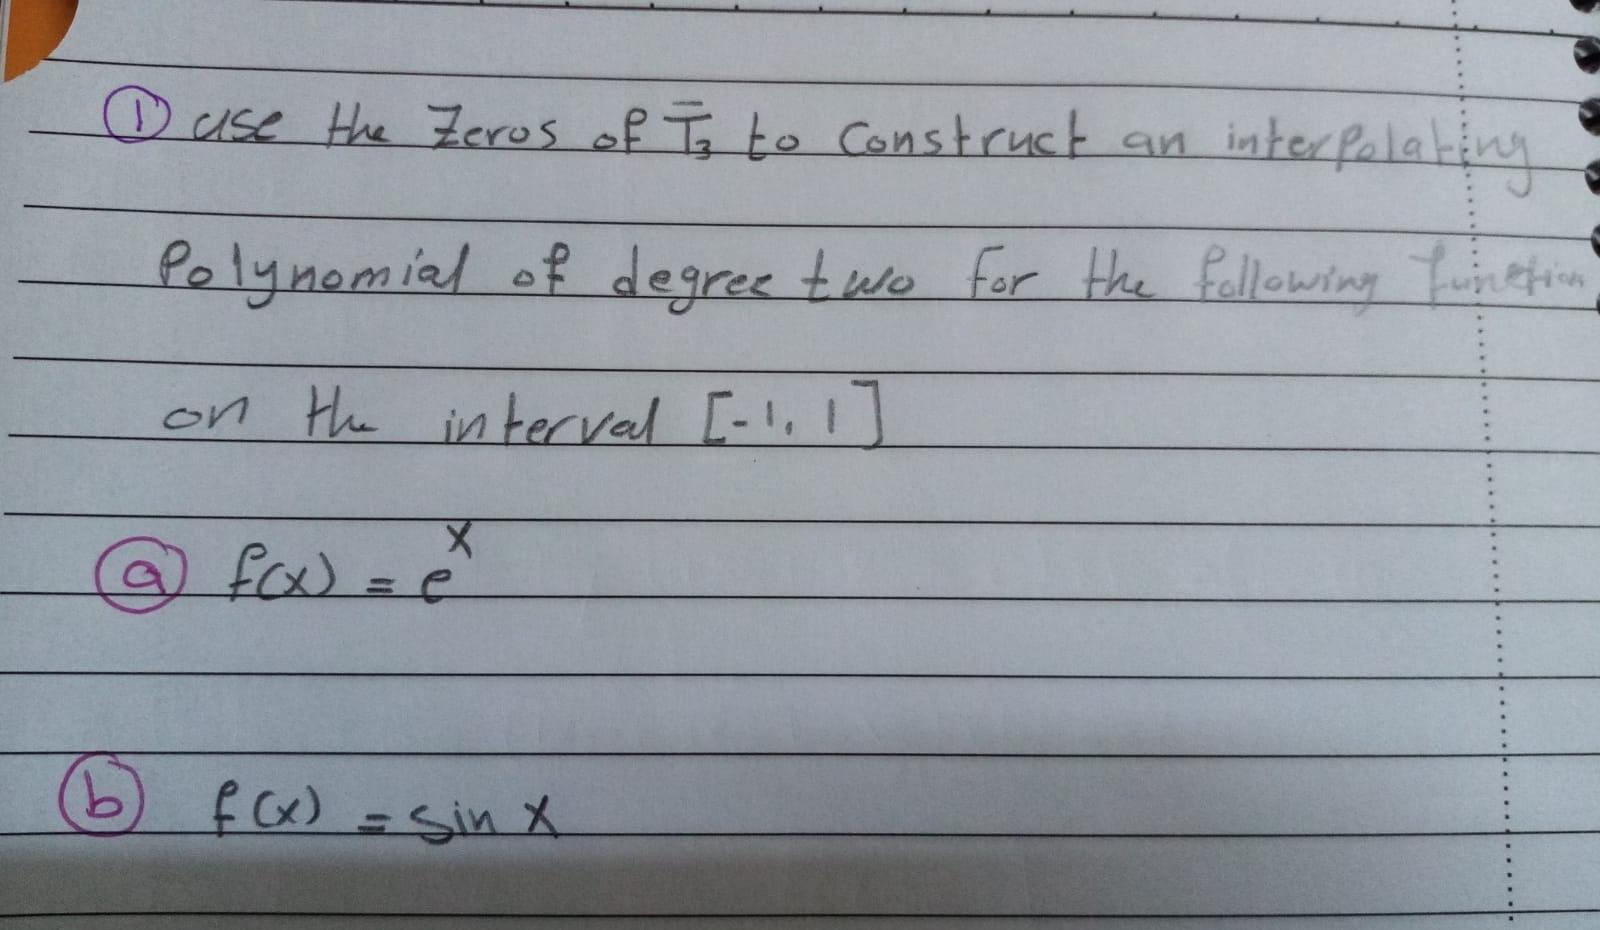 ① use the Zeros of T̄₃ to Construct an interpolating
Polynomial of degree two for the following function
on the interval [-1, 1]
ⓐ f(x) = eˣ
ⓑ f(x) = sin x